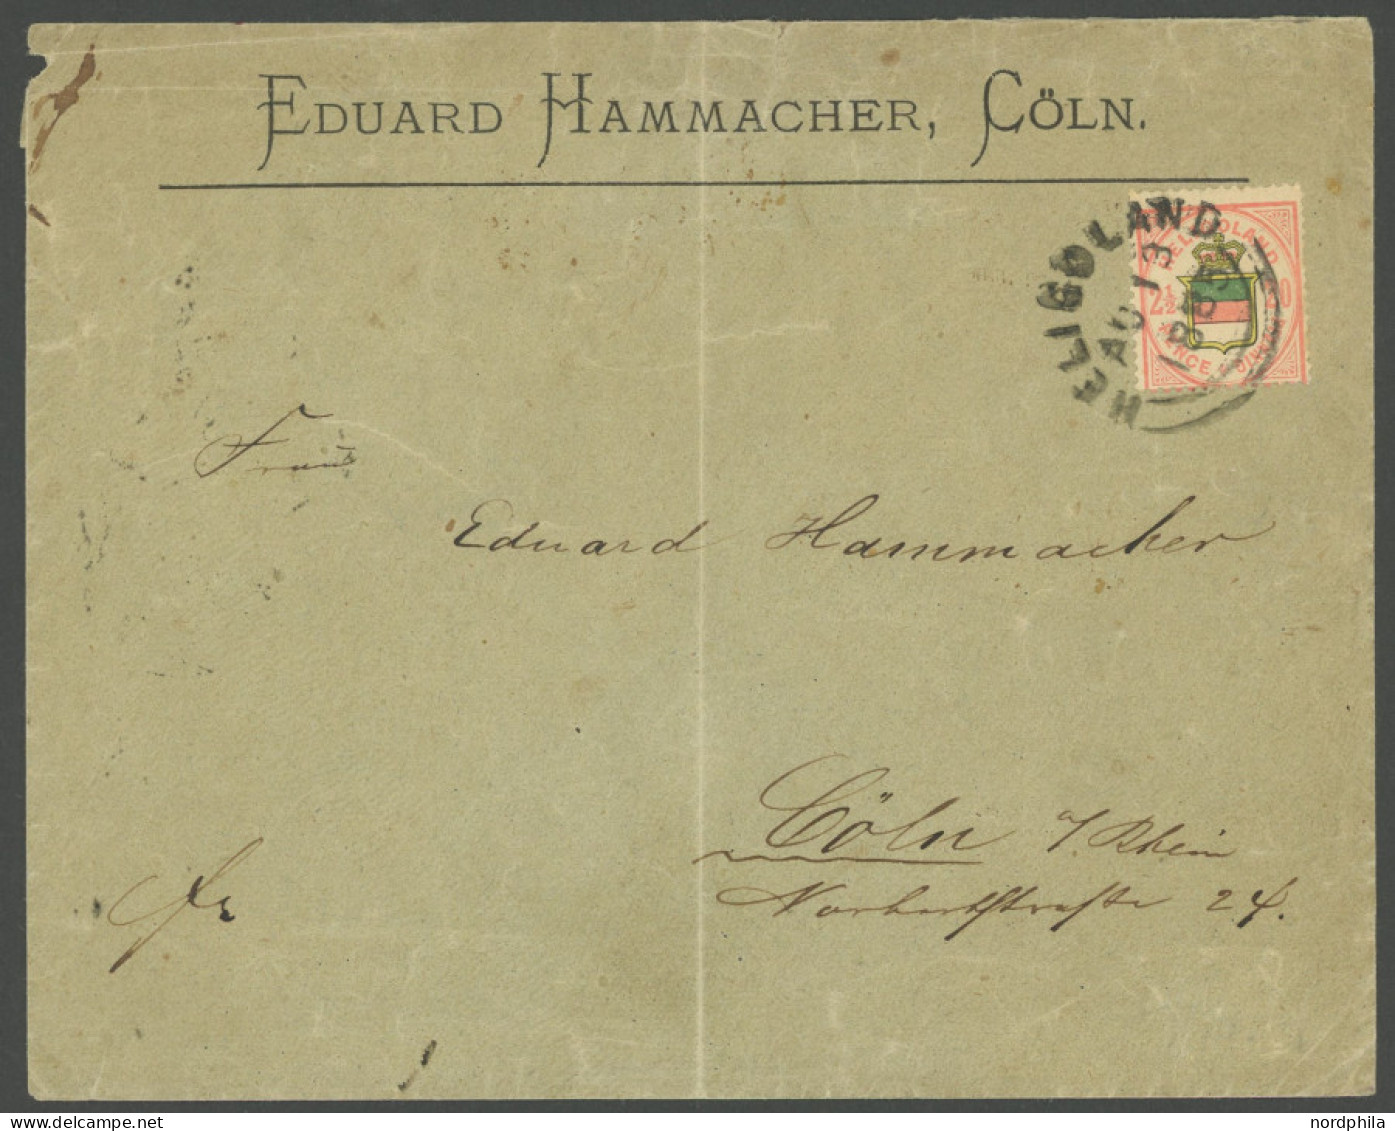 EDUARD HAMMACHER, CÖLN.
HELIGOLAND
AU 13
HELIGOLAND
2½
20
PENCE
Frau
Eduard Hammacher
Cöln a/Rhein
Norbertstraße 24.
fr
nordphila